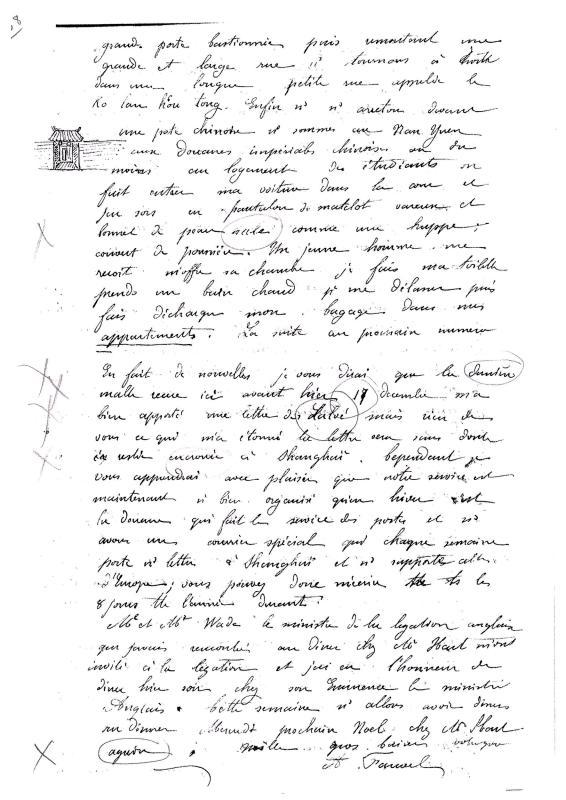 8
grande porte bastionnée puis remontant une
grande et large rue ns tournons à droite
dans une longue petite rue appelée le
Ko lan hou tong. Enfin ns ns arretons devant
une porte chinoise et sommes au Nan Yuen
aux Douanes impériales chinoises ou du
moins au logement des étudiants on
fait entrer ma voiture dans la cour et
j'en sors en pantalon de matelot vareuse et
bonnet de peau sale comme une huppe,
couvert de poussière. Un jeune homme me
reçoit m'offre sa chambre je fais ma toilette
prends un bain chaud pr me délasser puis
fais décharger mon bagage dans mes
appartements. La suite au prochain numero
En fait de nouvelles je vous dirai que la dernière
malle reçue ici avant hier 17 decembre m'a
bien apporté une lettre de Hervé mais rien de
vous ce qui m'a étonné la lettre sera sans doute
restée encore à Shanghaï. Cependant je
vous apprendrai avec plaisir que notre service est
maintenant si bien organisé qu'en hiver c'est
la douane qui fait le service des postes et ns
avons un courrier spécial qui chaque semaine
porte ns lettres à Shanghaï et ns rapporte celles
d'Europe; vous pouvez donc m'écrire ts les
8 jours tte l'année durant.
Mr et Mme Wade le ministre de la legation anglaise
que j'avais rencontré au diner chez Mr Hart m'ont
invité à la légation et j'ai eu l'honneur de
diner hier soir chez son Eminence le ministre
Anglais. Cette semaine ns allons avoir diners
sur diners Mercredi prochain Noel chez Mr Hart
mille gros baisers
A. Fauvel